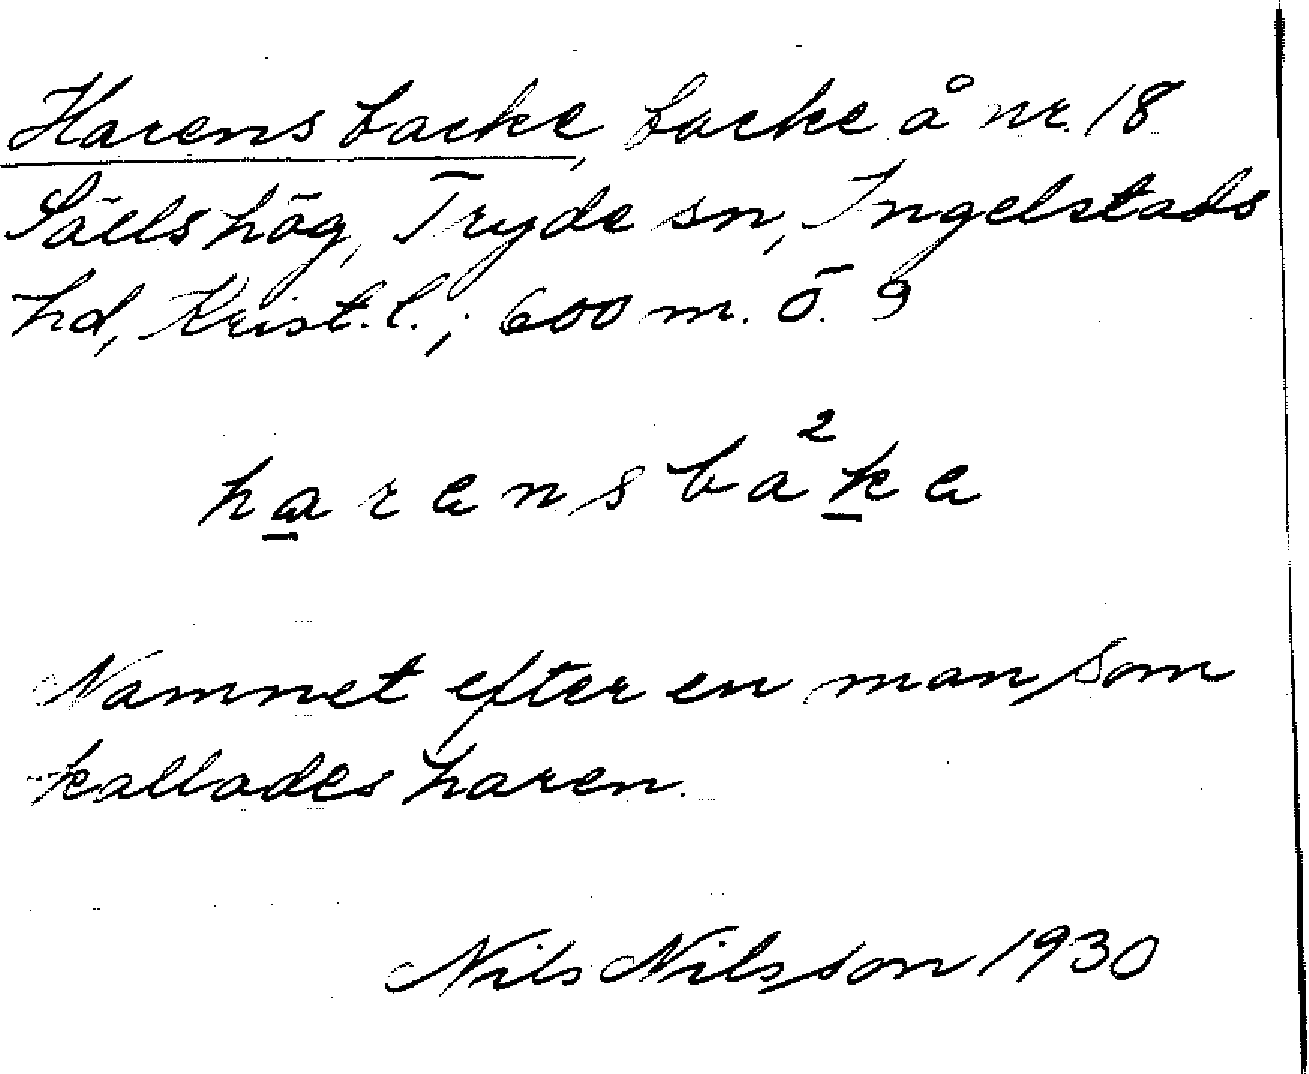 Harens backe, backe å nr. 18
Sällshög, Tryde sn, Ingelstads
hd, Krist. l.; 600 m. Ö. 9
harensba²ke
Namnet efter en man som
kallades haren.
Nils Nilsson 1930